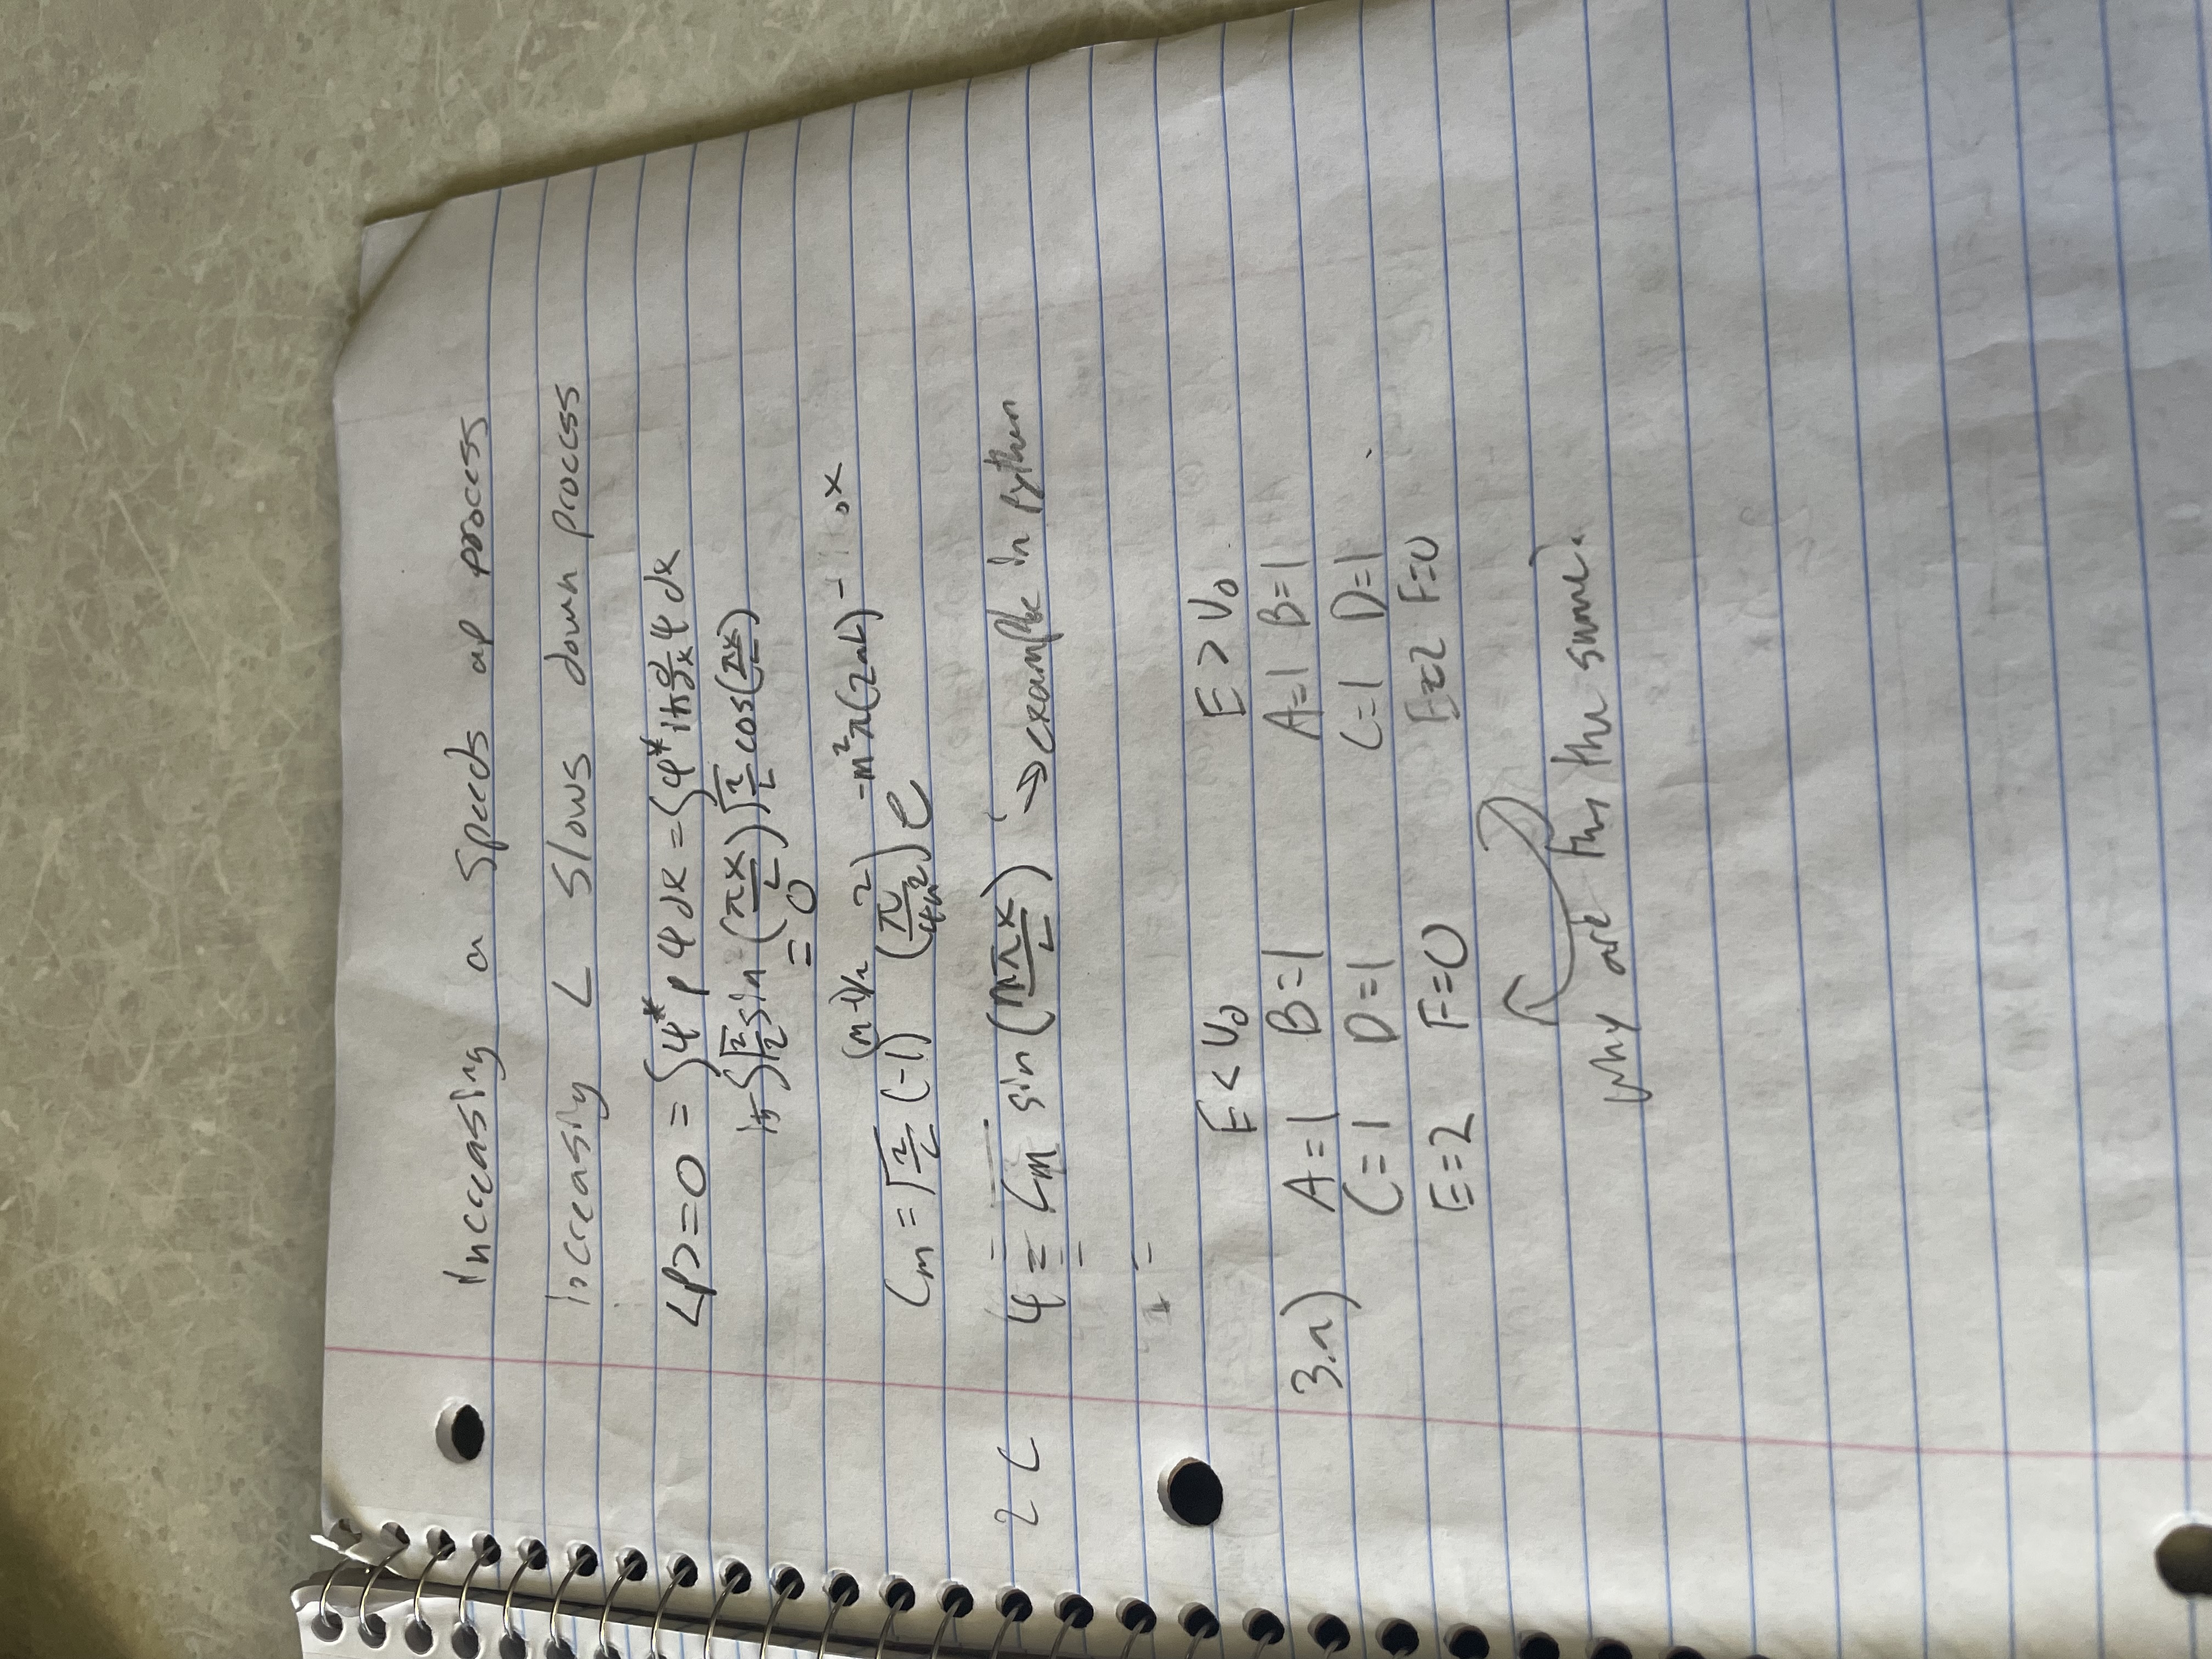 increasing a speeds up process
increasing L slows down process
<p> = 0 = ∫ψ* p ψ dx = ∫ψ* iħ ∂/∂x ψ dx
iħ ∫√(2/2) sin (πx/L) √(2/L) cos(πx/L)
= 0
Cm = √(2/L) (-1)^(m-1)/2 (π²/4a²) e^-m²π(2aL)-
2C ψ = Cm sin (mπx/L) → example in python
E < V₀ E > V₀
3.a) A=1 B=1 A=1 B=1
C=1 D=1 C=1 D=1
E=2 F=0 E=2 F=0
why are the same?